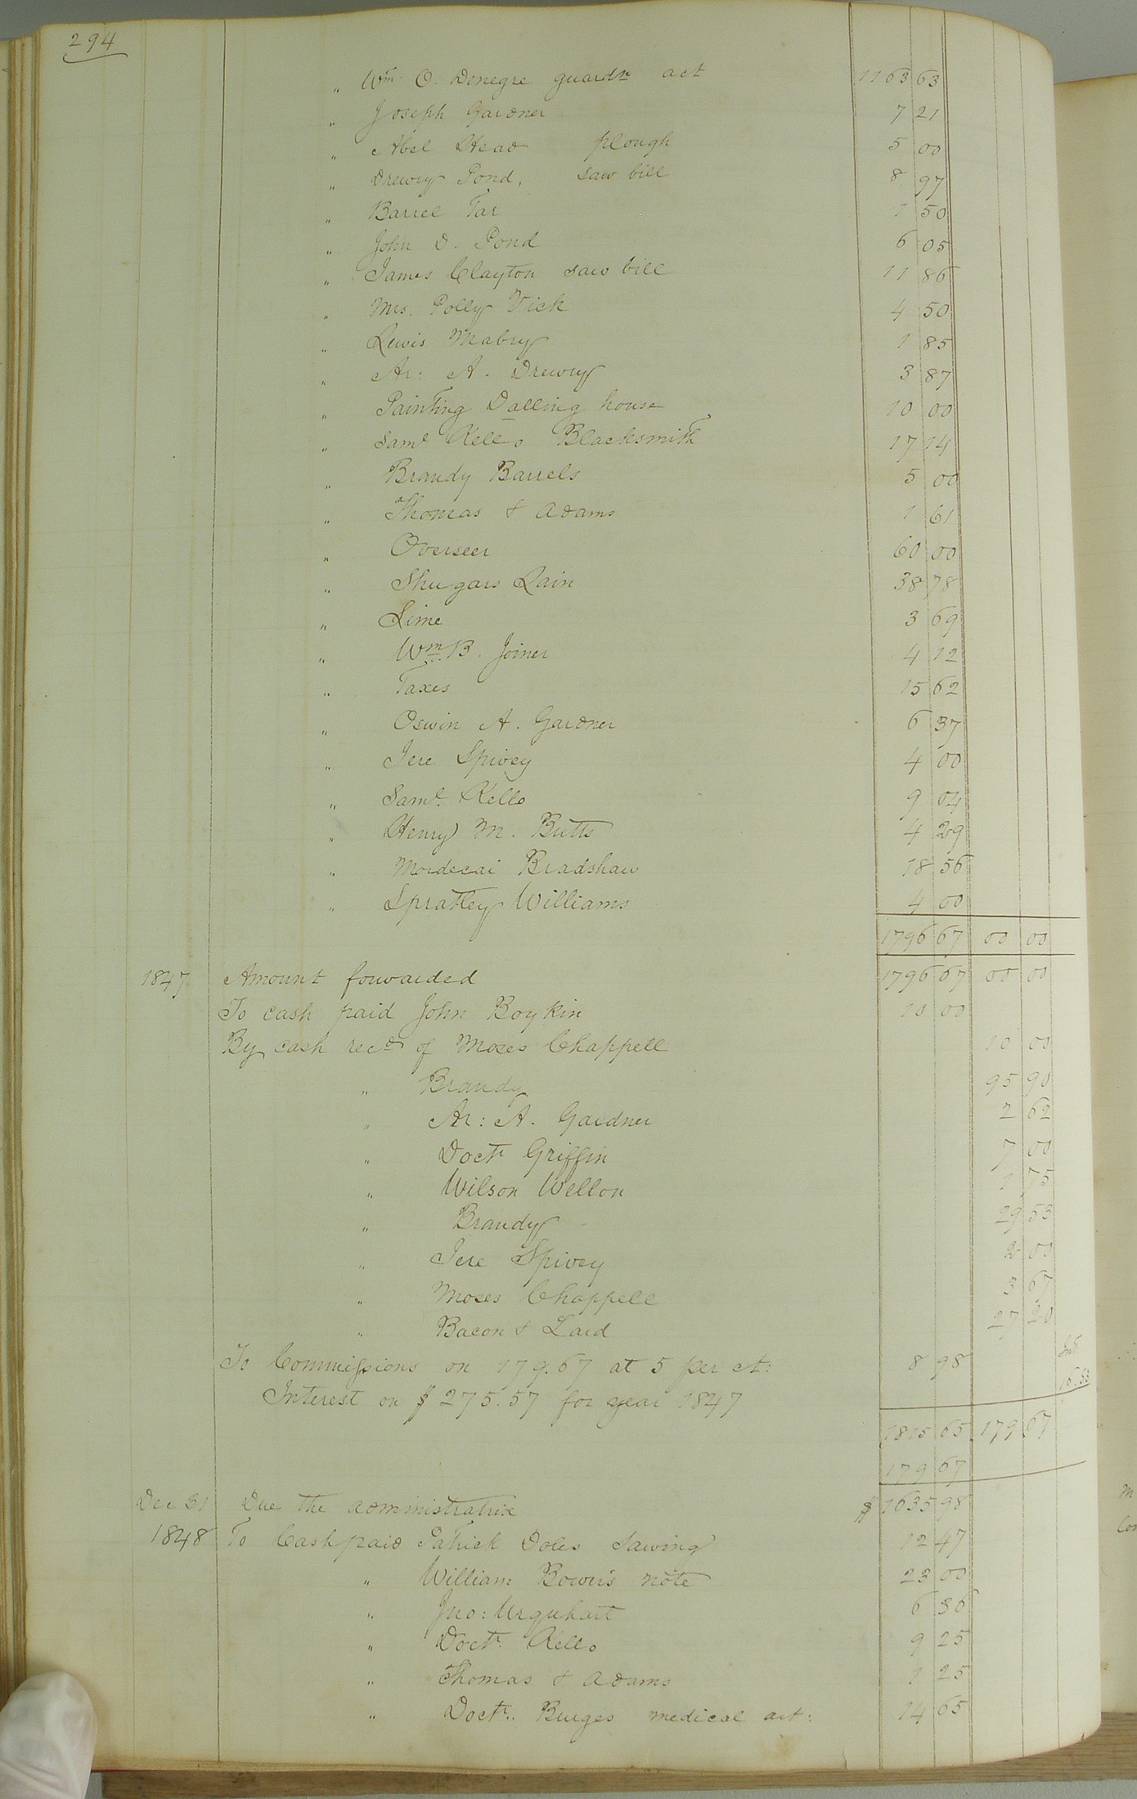 294
" Wm. O. Denegre guardn act 1163 63
" Joseph Gardner 7 21
" Abel Head plough 5 00
" Drewry Pond, saw bill 8 97
" Barrel Tar 1 50
" John D. Pond 6 05
" James Clayton saw bill 11 86
" Mrs. Polly Vick 4 50
" Lewis Mabry 1 85
" Ar: A. Drewry 3 87
" Painting Dalling house 10 00
" Saml Kello Blacksmith 17 14
" Brandy Barrels 5 00
" Thomas & Adams 1 61
" Overseer 60 00
" Shugars Lain 38 78
" Lime 3 69
" Wm B. Joiner 4 12
" Taxes 15 62
" Oswin A. Gardner 6 37
" Jere Spivey 4 00
" Saml. Kello 9 04
" Henry M. Butts 4 29
" Mordecai Bradshaw 18 56
" Spratley Williams 4 00
1796 67 00 00
1847 Amount forwarded 1796 67 00 00
To cash paid John Boykin 10 00
By cash recd of Moses Chappell 10 00
" Brandy 95 90
" Ar: A. Gardner 2 62
" Doctr Griffin 7 00
" Wilson Wellon 1 75
" Brandy 29 53
" Jere Spivey 2 00
" Moses Chappell 3 67
" Bacon & Lard 27 20
To Commissions on 179.67 at 5 per ct: 8 98
Interest on $275.57 for year 1847 16.53
1815 65 179 67
179 67
Dec 31 Due the administratrix $ 1635 98
1848 To Cash paid Patrick Doles Sawing 12 47
" William Bowers note 23 00
" Jno: Urquhart 6 30
" Doctr. Kello 9 25
" Thomas & Adams 1 25
" Doctr. Burges medical act: 14 65